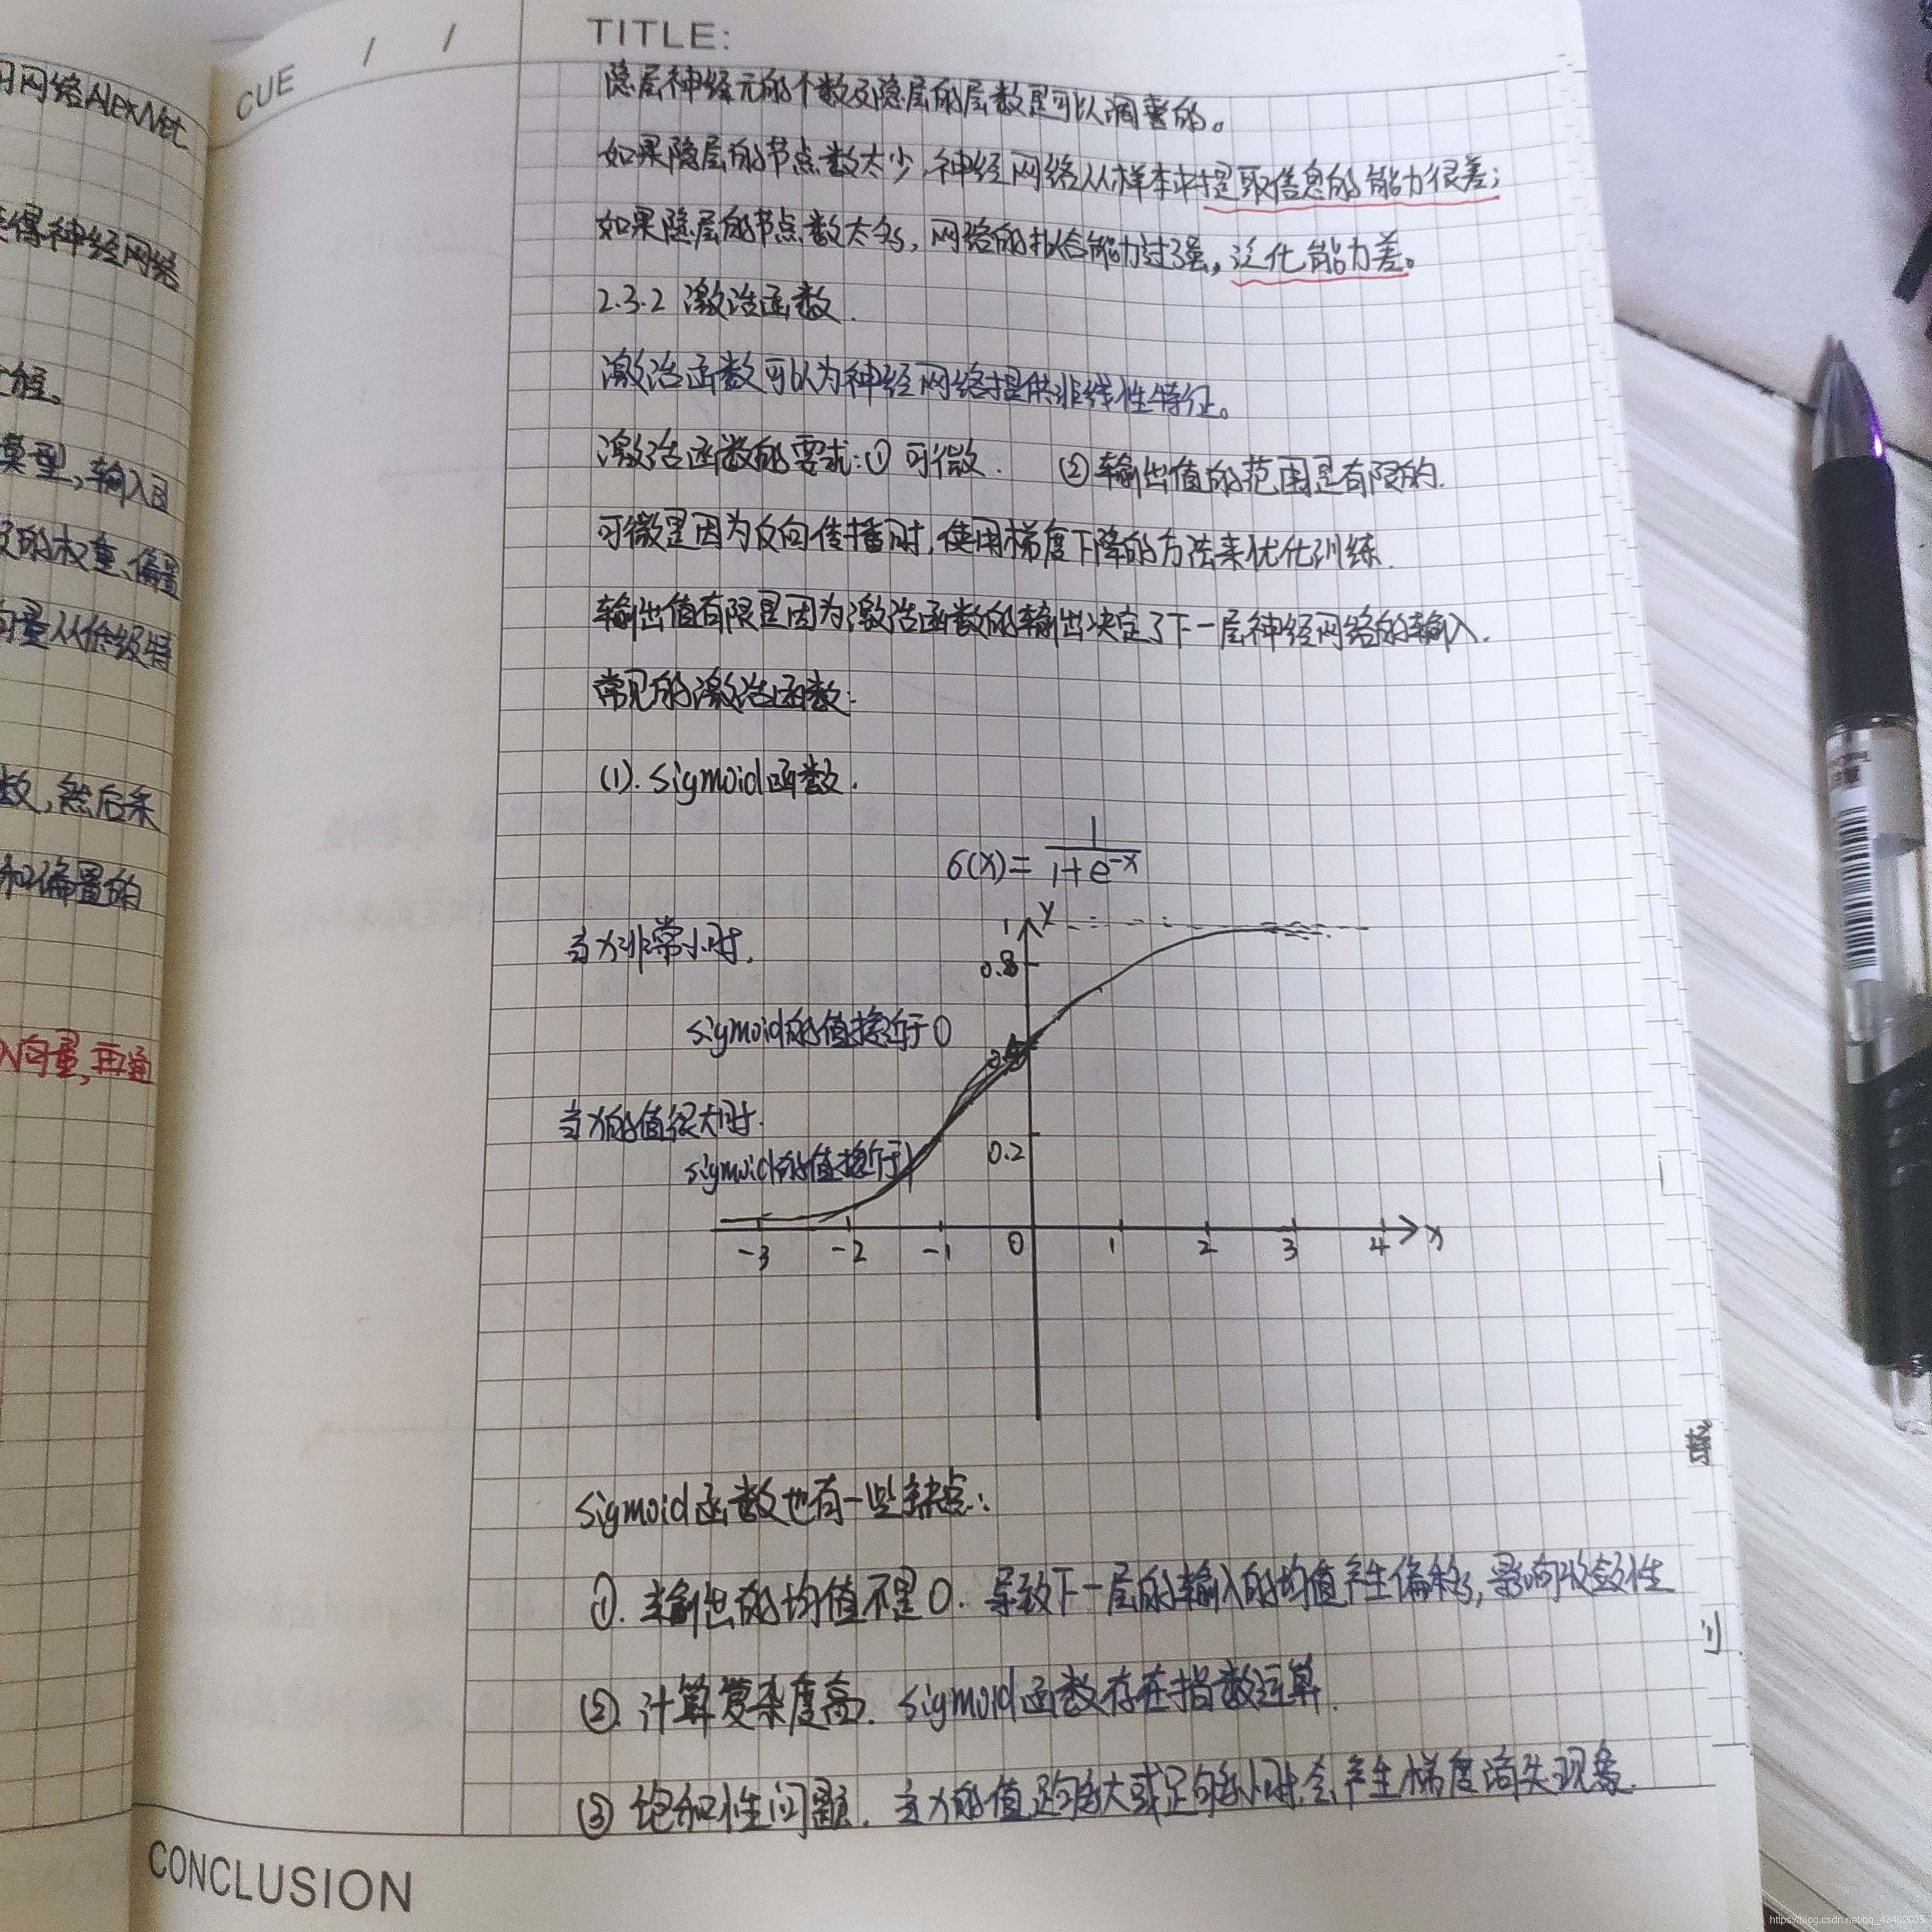 网络AlexNet
得神经网络
模型,输入
的权重、偏置
量从低级特
数,然后采
和偏置的
向量,再通
CUE / /
TITLE:
隐层神经元的个数及隐层的层数是可以调整的。
如果隐层的节点数太少,神经网络从样本中提取信息的能力很差;
如果隐层的节点数太多,网络的拟合能力过强,泛化能力差。
2.3.2 激活函数.
激活函数可以为神经网络提供非线性特征。
激活函数的要求:① 可微. ② 输出值的范围是有限的.
可微是因为反向传播时,使用梯度下降的方法来优化训练.
输出值有限是因为激活函数的输出决定了下一层神经网络的输入.
常见的激活函数:
(1). sigmoid函数.
σ(x)= 1/(1+e^-x)
当x非常小时,
sigmoid的值接近于0
当x的值很大时.
sigmoid的值接近于1
y
1
0.8
0.2
-3 -2 -1 0 1 2 3 4 x
sigmoid函数也有一些缺点:
①. 输出的均值不是0. 导致下一层的输入的均值产生偏移,影响收敛性
②. 计算复杂度高. sigmoid函数存在指数运算.
③ 饱和性问题. 当x的值足够大或足够小时,会产生梯度消失现象.
CONCLUSION
https://blog.csdn.net/qq_43462005